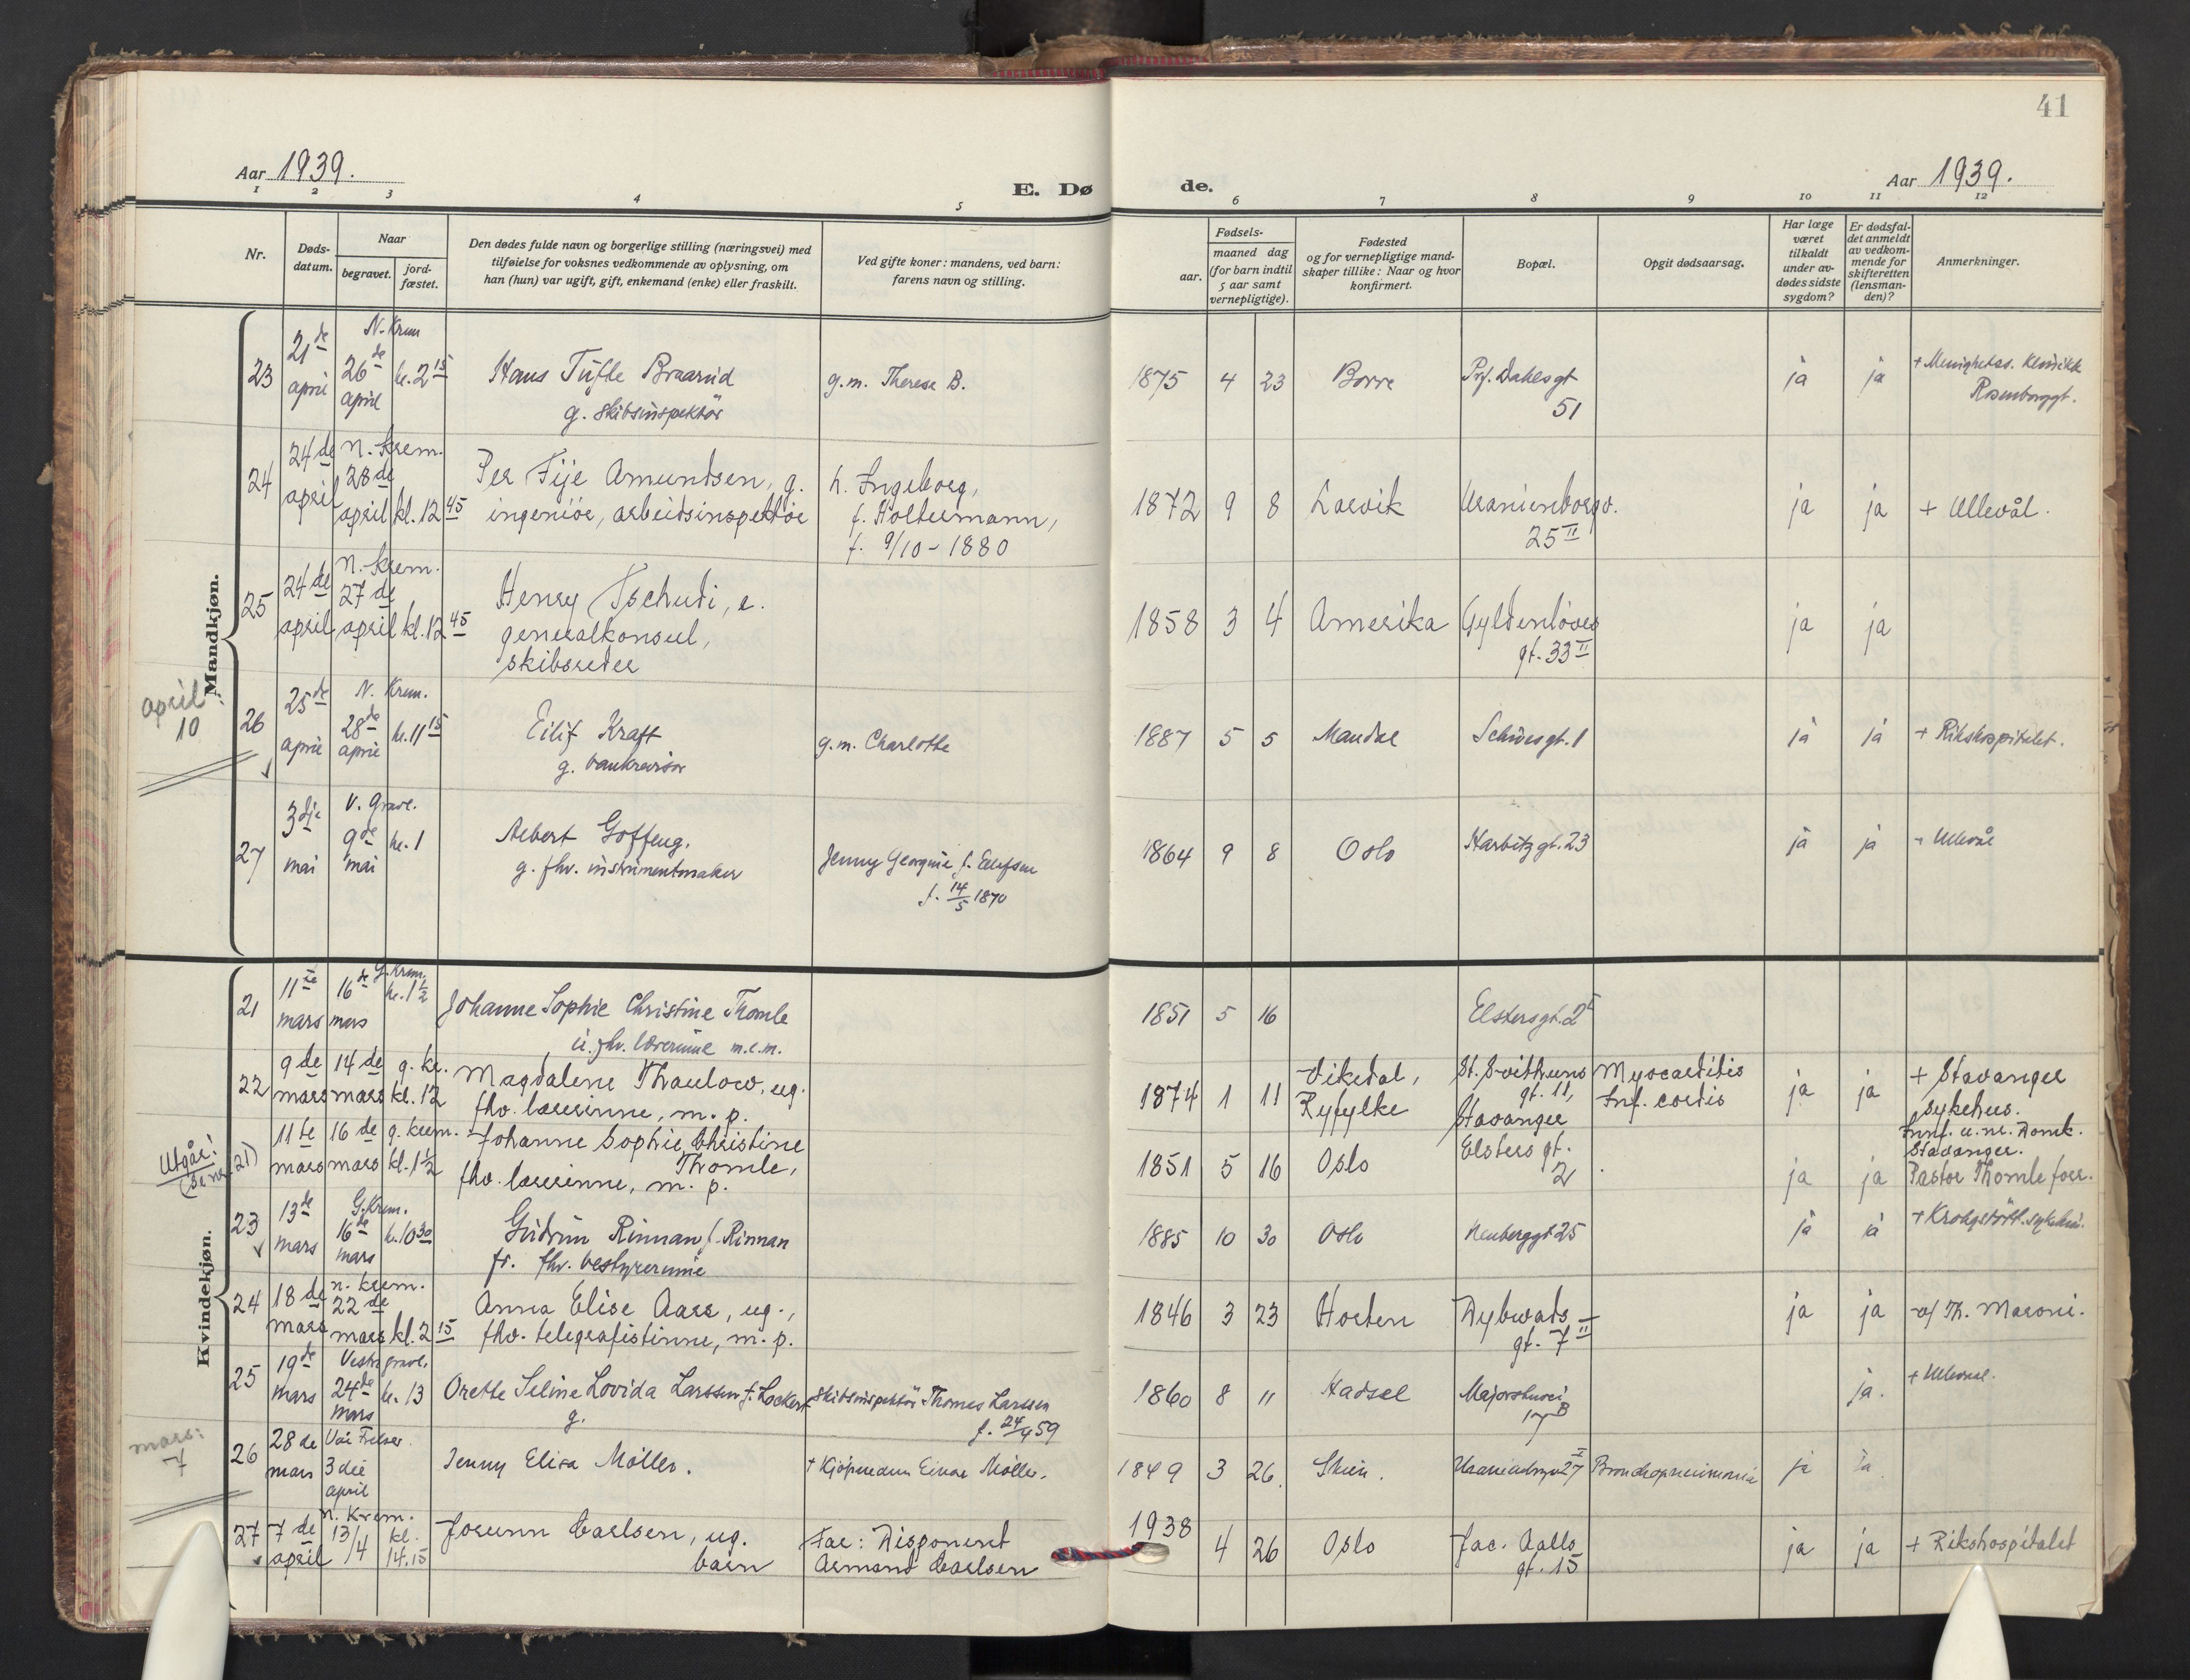 41
Aar 1939.
E. Dø
de.
Aar 1939.
1 2 3 4 5 6 7 8 9 10 11 12
Nr.
Døds-
datum.
Naar
begravet.
jord-
fæstet.
Den dødes fulde navn og borgerlige stilling (næringsvei) med
tilføielse for voksnes vedkommende av oplysning, om
han (hun) var ugift, gift, enkemand (enke) eller fraskilt.
Ved gifte koner: mandens, ved barn:
farens navn og stilling.
Fødsels-
aar.
maaned dag
(for barn indtil
5 aar samt
vernepligtige).
Fødested
og for vernepligtige mand-
skaper tillike: Naar og hvor
konfirmert.
Bopæl.
Opgit dødsaarsag.
Har læge
været
tilkaldt
under av-
dødes sidste
sygdom?
Er dødsfal-
det anmeldt
av vedkom-
mende for
skifteretten
(lensman-
den)?
Anmerkninger.
Mandkjøn.
23 21de april N. Krem 26de april kl. 2 15
Hans Tufte Braarud
g. skibsinspektör
g.m. Therese B.
1875 4 23 Borre Prf. Dahlsgt
51
ja ja + Menighetss. Klinikk
Rosenborggt.
24 24de april N. Krem. 28de april kl. 12 45
Per Fije Amundsen, g.
ingeniör, arbeidsinspektör
h. Ingeborg,
f. Holtermann,
f. 9/10 - 1880
1872 9 8 Larvik Uranienborgv.
25 II
ja ja + Ullevål.
25 24de april N. Krem. 27de april kl. 12 45
Henry Tschudi, e.
generalkonsul,
skibsreder
1858 3 4 Amerika Gyldenløves
gt. 33 II
ja ja
april:
10
26 25de april N. Krem. 28de april kl. 11 15
Eilif Kraft
g. bankrevisor
g.m. Charlotte
1887 5 5 Mandal Schivesgt. 1
ja ja + Rikshospitalet.
27 3dje mai V. Gravl. 9de mai kl. 1
Albert Goffeng.
g. fhv. instrumentmaker
Jenny Georgine f. Ellefsen
f. 14/5 1870
1864 9 8 Oslo Harbitzgt. 23
ja ja + Ullevål
Kvindekjøn.
21 11te mars 16de mars G. Krem. kl. 1 1/2
Johanne Sophie Christine Thomle
u. fhv. lærerinne m.e.m.
1851 5 16 Elstersgt. 2
22 9de mars 14de mars g. kr. kl. 12
Magdalene Thaulow, ug.
fhv. lærerinne, m. p.
1874 1 11 Vikedal,
Ryfylke
St. Svithuns
gt. 11,
Stavanger
Myocarditis
Inf. cordis
ja ja + Stavanger
sykehus.
Innf. u. nr. Domk.
Stavanger.
Utgår!
(se nr. 21)
11te mars 16de mars g. krem. kl. 1 1/2
Johanne Sophie Christine
Thomle,
fhv. lærerinne, m. p.
1851 5 16 Oslo Elsters gt.
2
ja ja Pastor Thomle forr.
23 13de mars G. Krem. 16de mars kl. 10 30
Gudrun Rinnan f. Rinnan
fr. fhv. bestyrerinne
1885 10 30 Oslo Neuberggt 25
ja ja + Krohgstøtt. sykehus.
24 18de mars n. krem. 22de mars kl. 2 15
Anna Elise Aass, ug.,
fhv. telegrafistinne, m. p.
1846 3 23 Horten Dybwads
gt. 7 II
ja ja v/ Th. Maroni.
25 19de mars Vestre gravl. 24de mars kl. 13
Orette Seline Lovida Larssen f. Lockert
g.
Skibsinspektör Thomas Larssen
f. 24/4 59
1860 8 11 Hadsel Majorstuvei
17 B
ja. + Ullevaal.
mars:
7
26 28de mars Vår Frelser. 3die april
Jenny Elisa Møller.
+ Kjöpmann Einar Møller.
1849 3 26. Skien. Uranienborgv 27 I Bronchopneumonia ja ja
27 7de april n. Krem. 13/4 kl. 14.15
Jorunn Carlsen, ug.
barn
Far: Disponent
Armand Carlsen
1938 4 26 Oslo Jac. Aalls
gt. 15
ja ja + Rikshospitalet